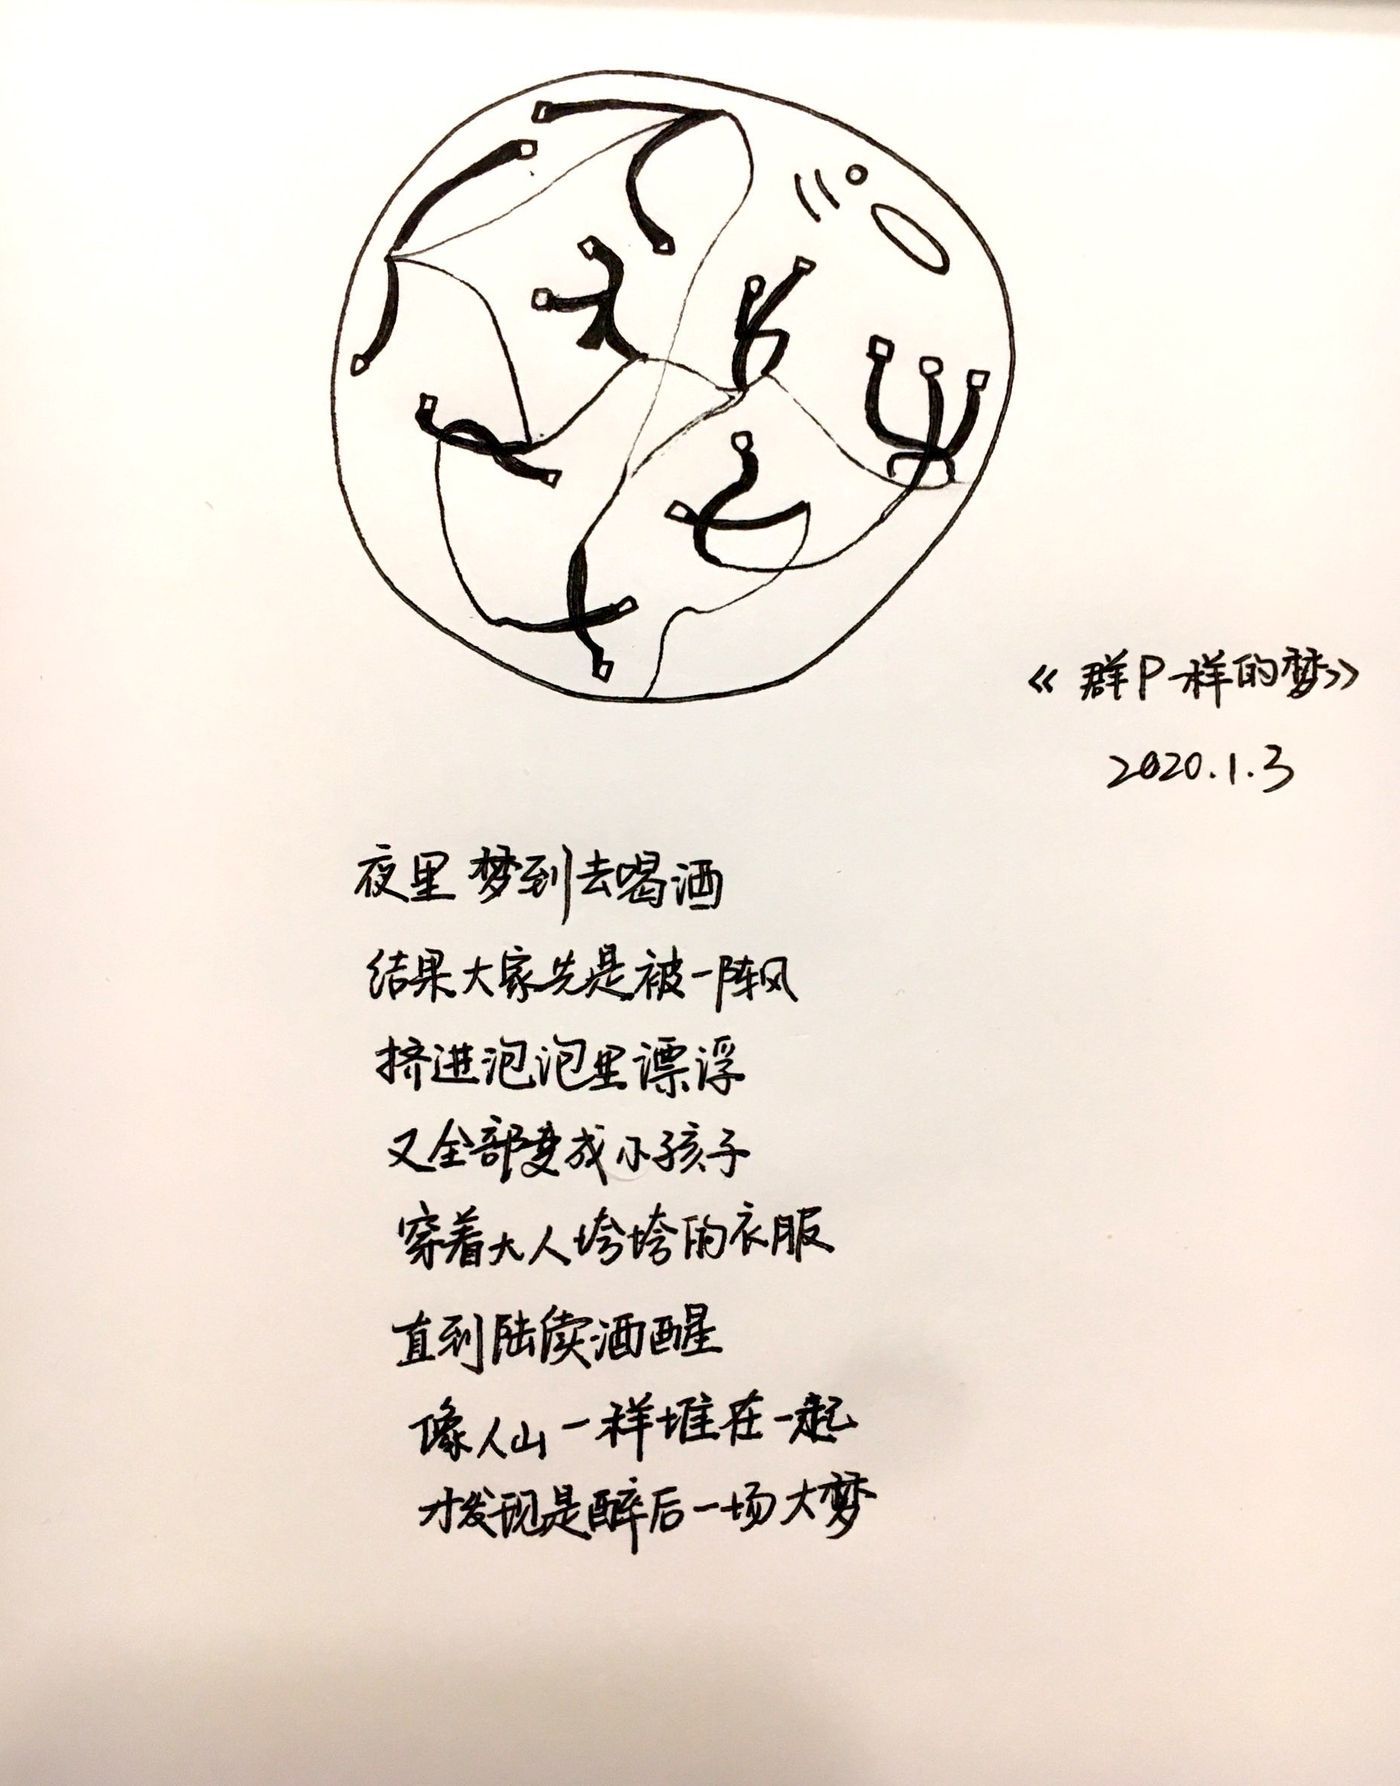 《群P一样的梦》
2020.1.3
夜里梦到去喝酒
结果大家先是被一阵风
挤进泡泡里漂浮
又全部变成小孩子
穿着大人垮垮的衣服
直到陆续酒醒
像人山一样堆在一起
才发现是醉后一场大梦